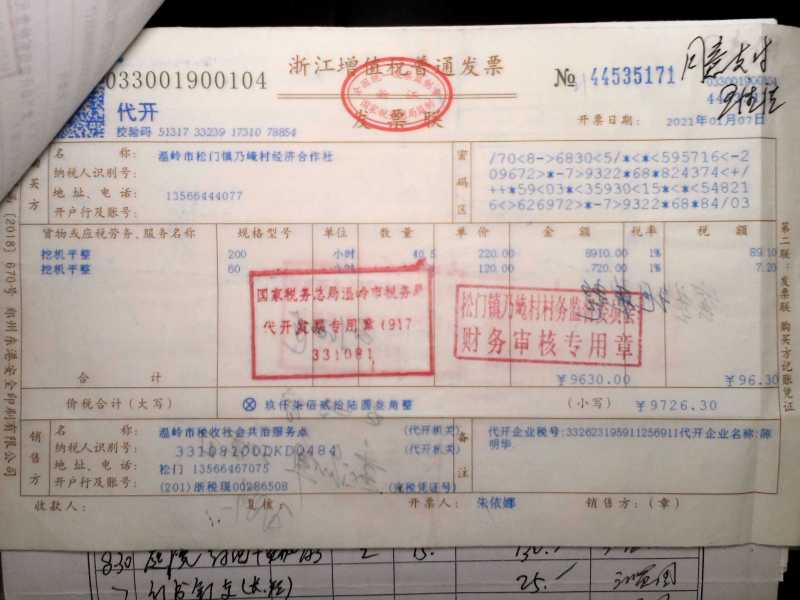 033001900104
浙江增值税普通发票
发票联
№ 44535171
同意支付
033001900104
代开
校验码 51317 33239 17310 78854
开票日期: 2021年01月07日
购买方
名 称: 温岭市松门镇乃崦村经济合作社
纳税人识别号:
地 址、电 话: 13566444077
开户行及账号:
密码区
/70<8->6830<5/*<*<595716<-2
09672>*-7>9322*68*824374<+/
++*59<03*<35930<15*+<*<54821
6<>626972>*-7>9322*68*84/03
货物或应税劳务、服务名称 规格型号 单位 数量 单价 金额 税率 税额
挖机平整 200 小时 40.5 220.00 8910.00 1% 89.10
挖机平整 60 120.00 720.00 1% 7.20
国家税务总局温岭市税务局
代开发票专用章(917
331081
松门镇乃崦村村务监督委员会
财务审核专用章
合 计 ¥9630.00 ¥96.30
价税合计(大写) ⊗ 玖仟柒佰贰拾陆圆叁角整 (小写) ¥9726.30
销售方
名 称: 温岭市税收社会共治服务点 (代开机关)
纳税人识别号: 33108100DKD0484 (代开机关)
地 址、电 话: 松门 13566467075
开户行及账号: (201)浙税现00286508 (完税凭证号)
备注
代开企业税号:332623195911256911代开企业名称:陈
明华
收款人: 复核: 开票人: 朱依娜 销售方:(章)
第二联:发票联 购买方记账凭证
(2018)670号 郑州东港安全印刷有限公司
830
25.